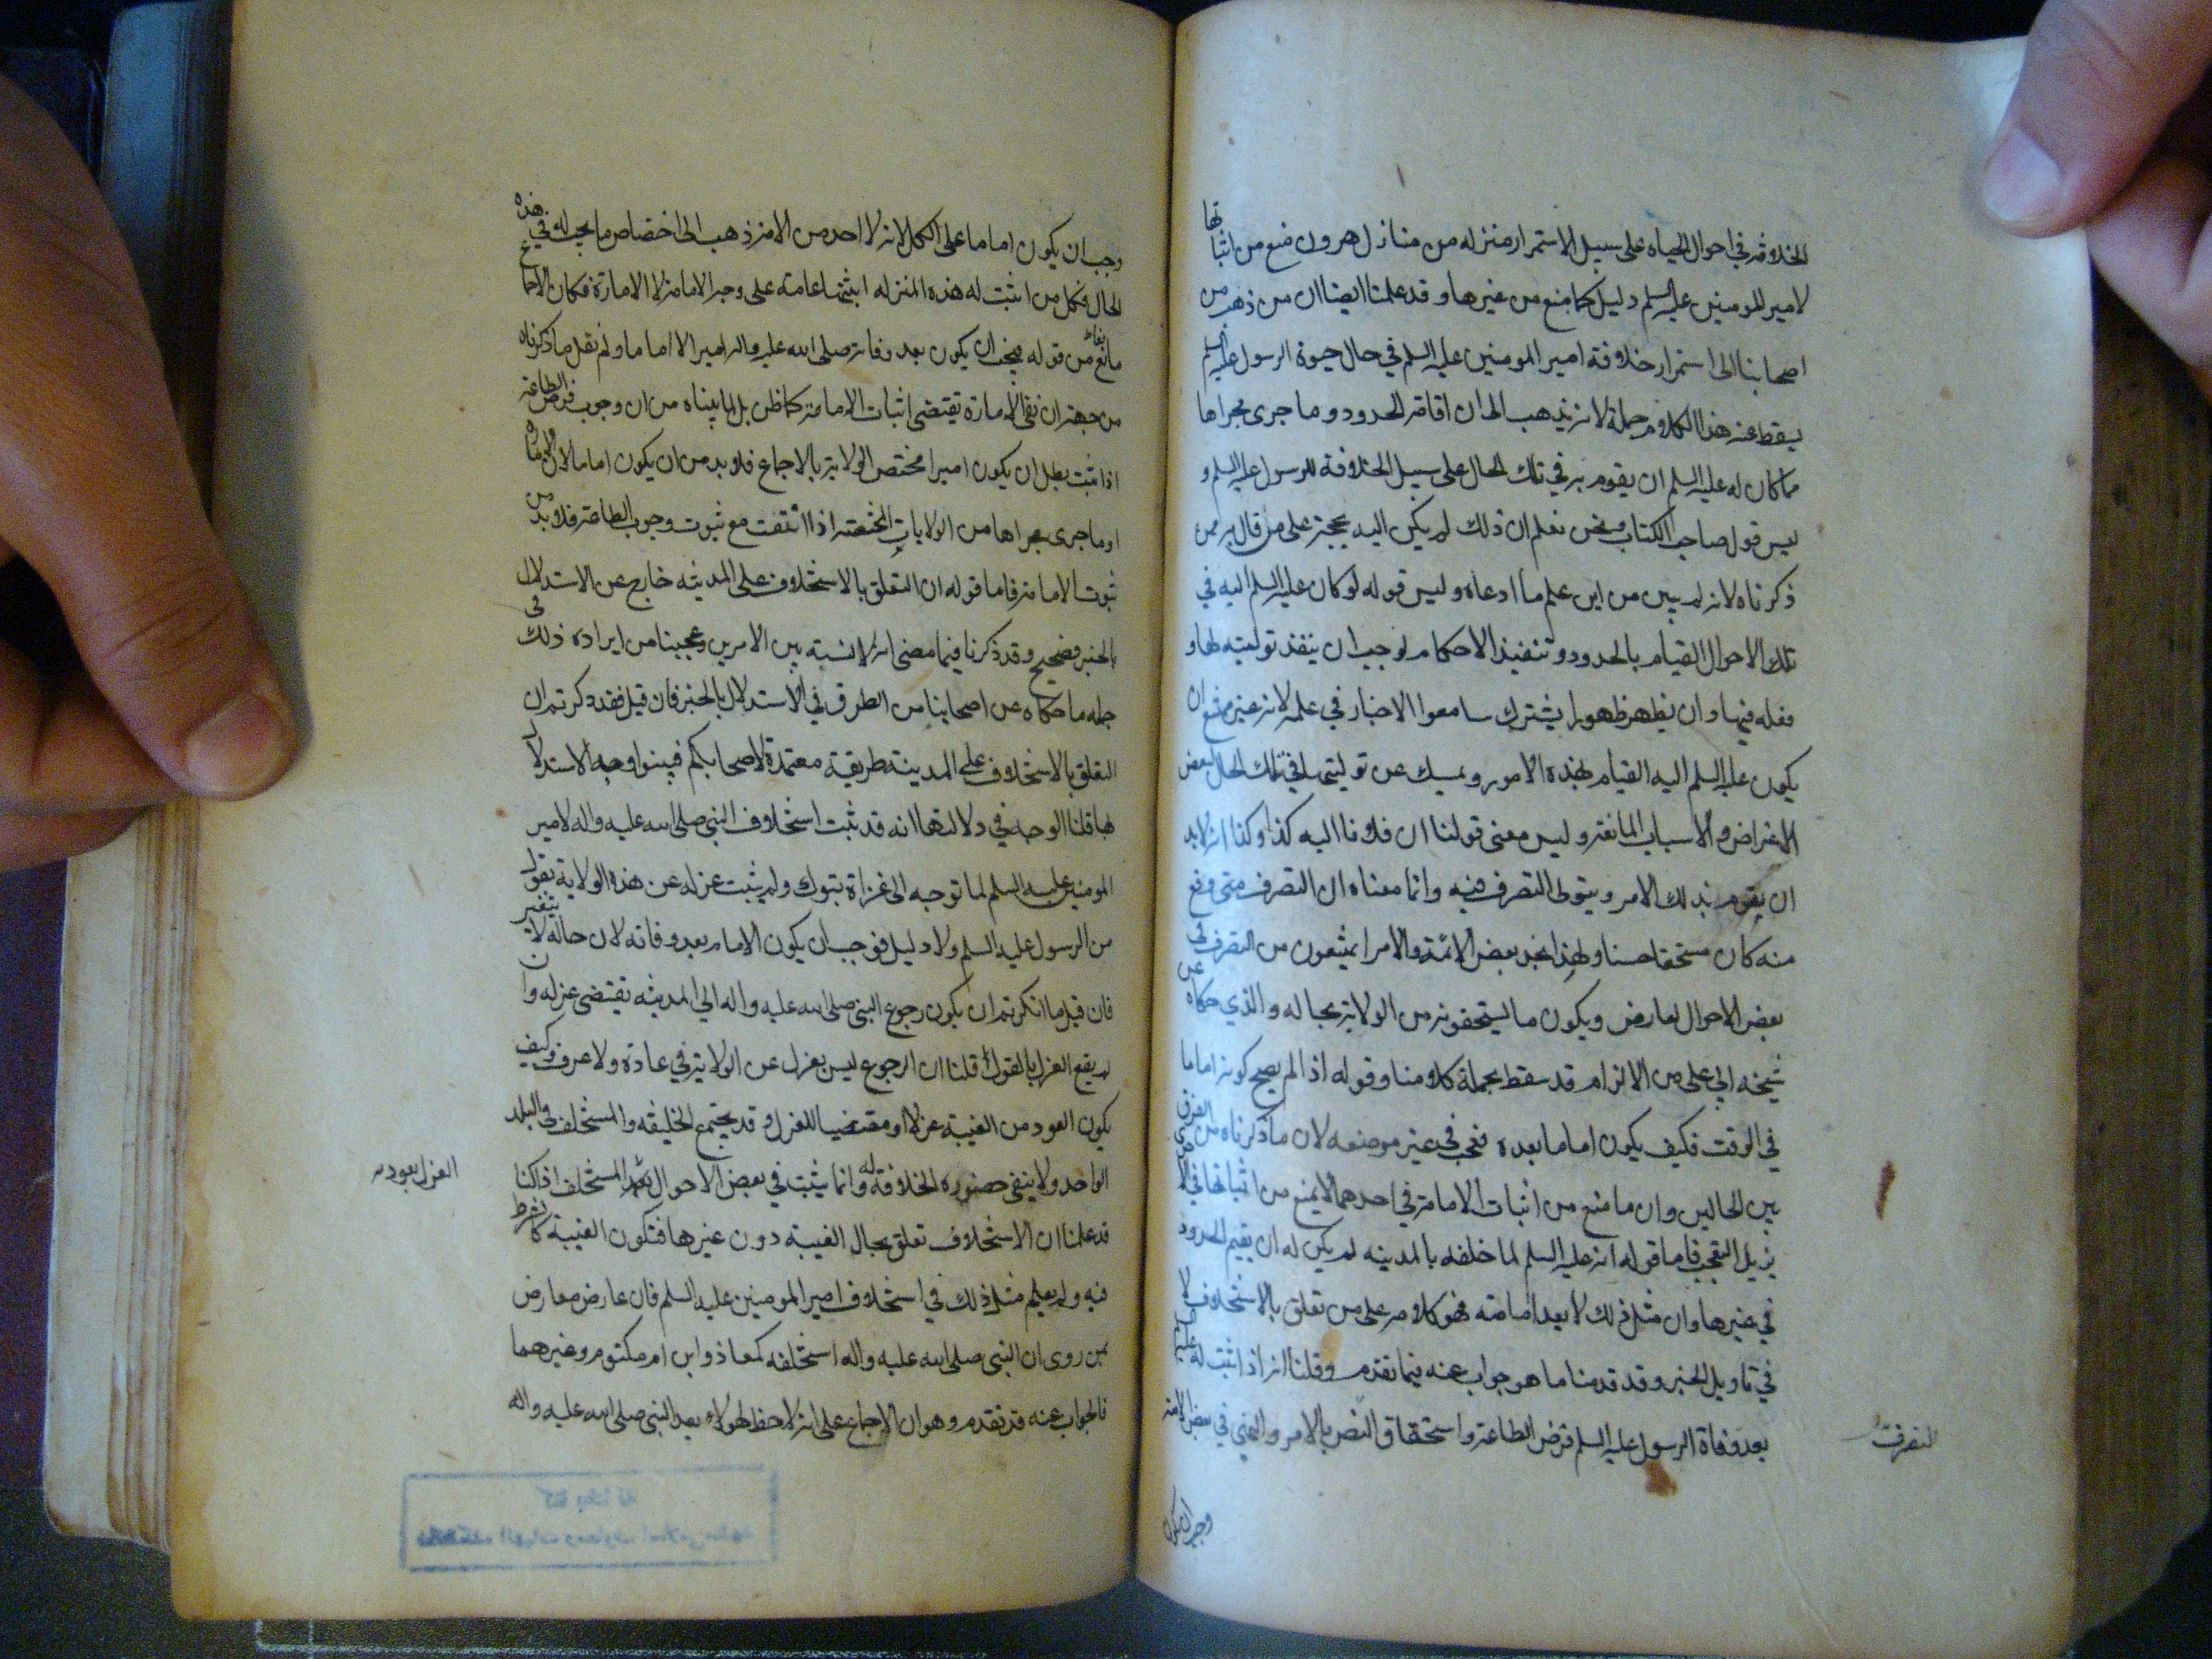 الخلافة في احوال الحياه على سبيل الاستمرار منزله من منازل هرون منع من اثباتها
لامير المومنين عليه السلم دليل كما منع من غيرها وقد علمنا ايضا ان من ذهب من
اصحابنا الى استمرار خلافة امير المومنين عليه السلم في حال حيوة الرسول عليه السلم
يسقط عنه هذا الكلام جملة لانه يذهب الى ان اقامة الحدود وما جرى مجراها
مما كان له عليه السلم ان يقوم به في تلك الحال على سبيل الخلافة للرسول عليه السلم و
ليس قول صاحب الكتاب ونحن نعلم ان ذلك لم يكن اليه بحجة على من قال به ممن
ذكرناه لانه لم يبين من اين علم ما ادعاه وليس قوله لو كان عليه السلم اليه في
تلك الاحوال القيام بالحدود وتنفيذ الاحكام لوجب ان ينفذ توليته لها و
فعله فيها وان يظهر ظهورا يشترك سامعوا الاخبار في علمه لانه غير ممتنع ان
يكون عليه السلم اليه القيام بهذه الامور ويمسك عن توليتها في تلك الحال لبعض
الاغراض والاسباب المانعة وليس معنى قولنا ان فلانا اليه كذا وكذا انه لابد
ان يقوم بذلك الامر ويتولى التصرف فيه وانما معناه ان التصرف متى وقع
منه كان مستحقا حسنا ولهذا نجد بعض الائمة والامرا يمتنعون من التصرف في
بعض الاحوال لعارض ويكون ما يستحقونه من الولاية بحاله والذي حكاه عن
شيخه ابي علي من الالزام قد سقط بجملة كلامنا وقوله اذا لم يصح كونه اماما
في الوقت فكيف يكون اماما بعده فتعجب في غير موضعه لان ما ذكرناه من الفرق
بين الحالين وان ما منع من اثبات الامامة في احدهما لا يمنع من اثباتها في الاخرى
يزيل التعجب فاما قوله انه عليه السلم لما خلفه بالمدينه لم يكن له ان يقيم الحدود
في غيرها وان مثل ذلك لا يعد امامته فهو كلام على من تعلق بالاستخلاف لا
في تاويل الخبر وقد قدمنا ما هو جواب عنه فيما تقدم وقلنا انه اذا ثبت له عليه السلم
بعد وفاة الرسول عليه السلم فرض الطاعة واستحقاق التصرف بالامر والنهي في بعض الامة
التصرف
وجب ان يكون
وجب ان يكون اماما على الكل لانه لا احد من الامة ذهب الى اختصاص ما يجب له في هذه
الحال وكل من اثبت له هذه المنزله اثبتها عامة على وجه الامامة لا الامارة فكان الاجماع
مانعا من قوله فيجب ان يكون بعد وفاته صلى الله عليه واله اميرا لا اماما ولم نقل ما ذكرناه
من جهة ان نفي الامارة تقتضى اثبات الامامة كما ظن بل لما بيناه من ان وجوب فرض الطاعة
اذا ثبت بطل ان يكون اميرا مختص الولاية بالاجماع فلا بد من ان يكون اماما لان الامارة
او ما جرى مجراها من الولايات المختصة اذا انتفت مع ثبوت وجوب الطاعة فلا بد من
ثبوت الامامة فاما قوله ان التعلق بالاستخلاف على المدينه خارج عن الاستدلال
بالخبر فصحيح وقد ذكرنا فيما مضى انه لا نسبة بين الامرين وعجبنا من ايراده ذلك في
جمله ما حكاه عن اصحابنا من الطرق في الاستدلال بالخبر فان قيل فقد ذكرتم ان
التعلق بالاستخلاف على المدينة طريقة معتمدة لاصحابكم فبينوا وجه الاستدلال
بها قلنا الوجه في دلالتها انه قد ثبت استخلاف النبي صلى الله عليه واله لامير
المومنين عليه السلم لما توجه الى غزاة تبوك ولم يثبت عزله عن هذه الولاية بقول
من الرسول عليه السلم ولا دليل فوجب ان يكون الامام بعد وفاته لان حاله لا يتغير
فان قيل ما انكرتم ان يكون رجوع النبي صلى الله عليه واله الي المدينه يقتضى عزله وان
لم يقع العزل بالقول قلنا ان الرجوع ليس بعزل عن الولاية في عادة ولا عرف وكيف
يكون العود من الغيبة عزلا او مقتضيا للعزل وقد يجتمع الخليفه والمستخلف في البلد
الواحد ولا ينفي حضوره الخلافة له وانما يثبت في بعض الاحوال المستخلف اذا كنا
العزل بعود
قد علمنا ان الاستخلاف تعلق بحال الغيبة دون غيرها فتكون الغيبة كالشرط
فيه ولم يعلم مثل ذلك في استخلاف امير المومنين عليه السلم فان عارض معارض
بمن روى ان النبي صلى الله عليه واله استخلفه كمعاذ وابن ام مكتوم وغيرهما
فالجواب عنه قد تقدم وهو ان الاجماع على انه لا حظ لهولاء بعد النبي صلى الله عليه واله